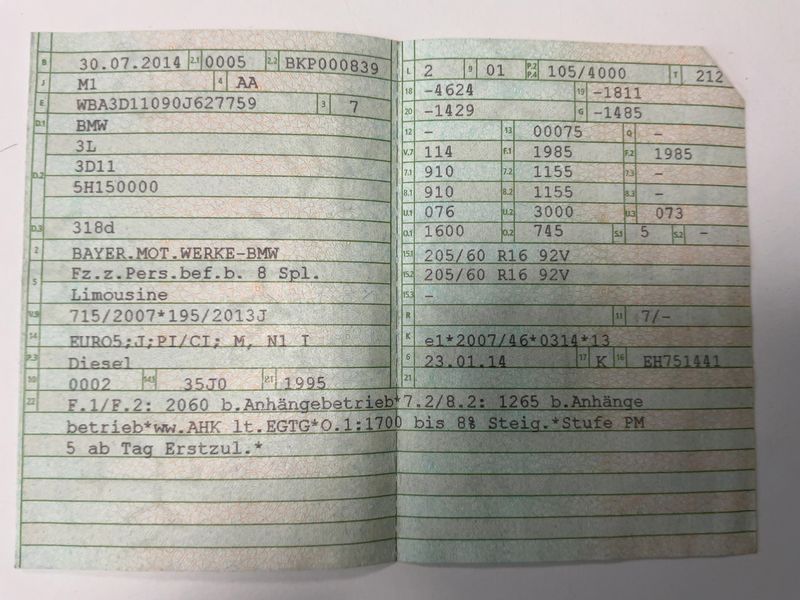 B 30.07.2014 2.1 0005 2.2 BKP000839
J M1 4 AA
E WBA3D11090J627759 3 7
D.1 BMW
D.2 3L
3D11
5H150000
D.3 318d
2 BAYER.MOT.WERKE-BMW
5 Fz.z.Pers.bef.b. 8 Spl.
Limousine
V.9 715/2007*195/2013J
14 EURO5;J;PI/CI; M, N1 I
P.3 Diesel
10 0002 14.1 35J0 P.1 1995
L 2 9 01 P.2 P.4 105/4000 T 212
18 -4624 19 -1811
20 -1429 G -1485
12 - 13 00075 Q -
V.7 114 F.1 1985 F.2 1985
7.1 910 7.2 1155 7.3 -
8.1 910 8.2 1155 8.3 -
U.1 076 U.2 3000 U.3 073
O.1 1600 O.2 745 S.1 5 S.2 -
15.1 205/60 R16 92V
15.2 205/60 R16 92V
15.3 -
R 11 7/-
K e1*2007/46*0314*13
6 23.01.14 17 K 16 EH751441
21
22 F.1/F.2: 2060 b.Anhängebetrieb*7.2/8.2: 1265 b.Anhänge
betrieb*ww.AHK lt.EGTG*O.1:1700 bis 8% Steig.*Stufe PM
5 ab Tag Erstzul.*